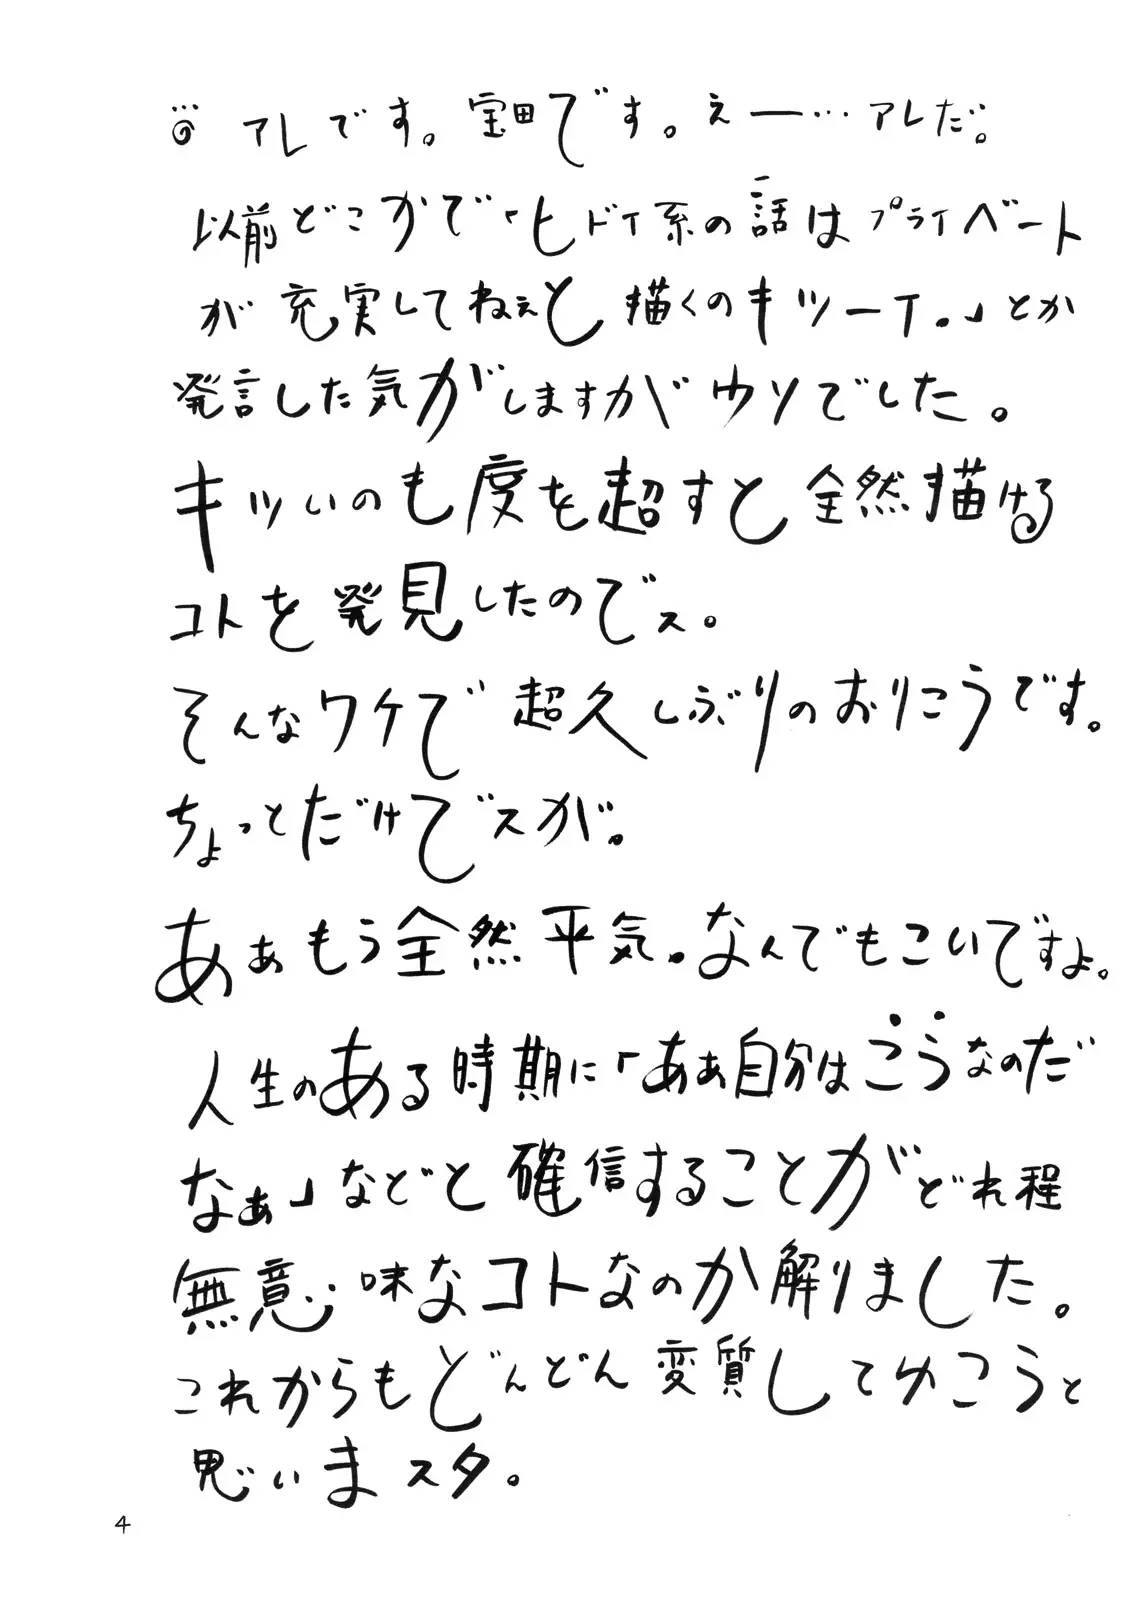 アレです。宝田です。ぇー…アレだ。
以前どこかで「ヒドイ系の話はプライベート
が充実してねぇと描くのキツーイ。」とか
発言した気がしますがウソでした。
キツいのも度を超すと全然描ける
コトを発見したのでス。
そんなワケで超久しぶりのおりこうです。
ちょっとだけでスが。
あぁもう全然平気。なんでもこいですよ。
人生のある時期に「あぁ自分はこうなのだ
なぁ」などと確信することがどれ程
無意味なコトなのか解りました。
これからもどんどん変質してゆこうと
思いまスタ。
4